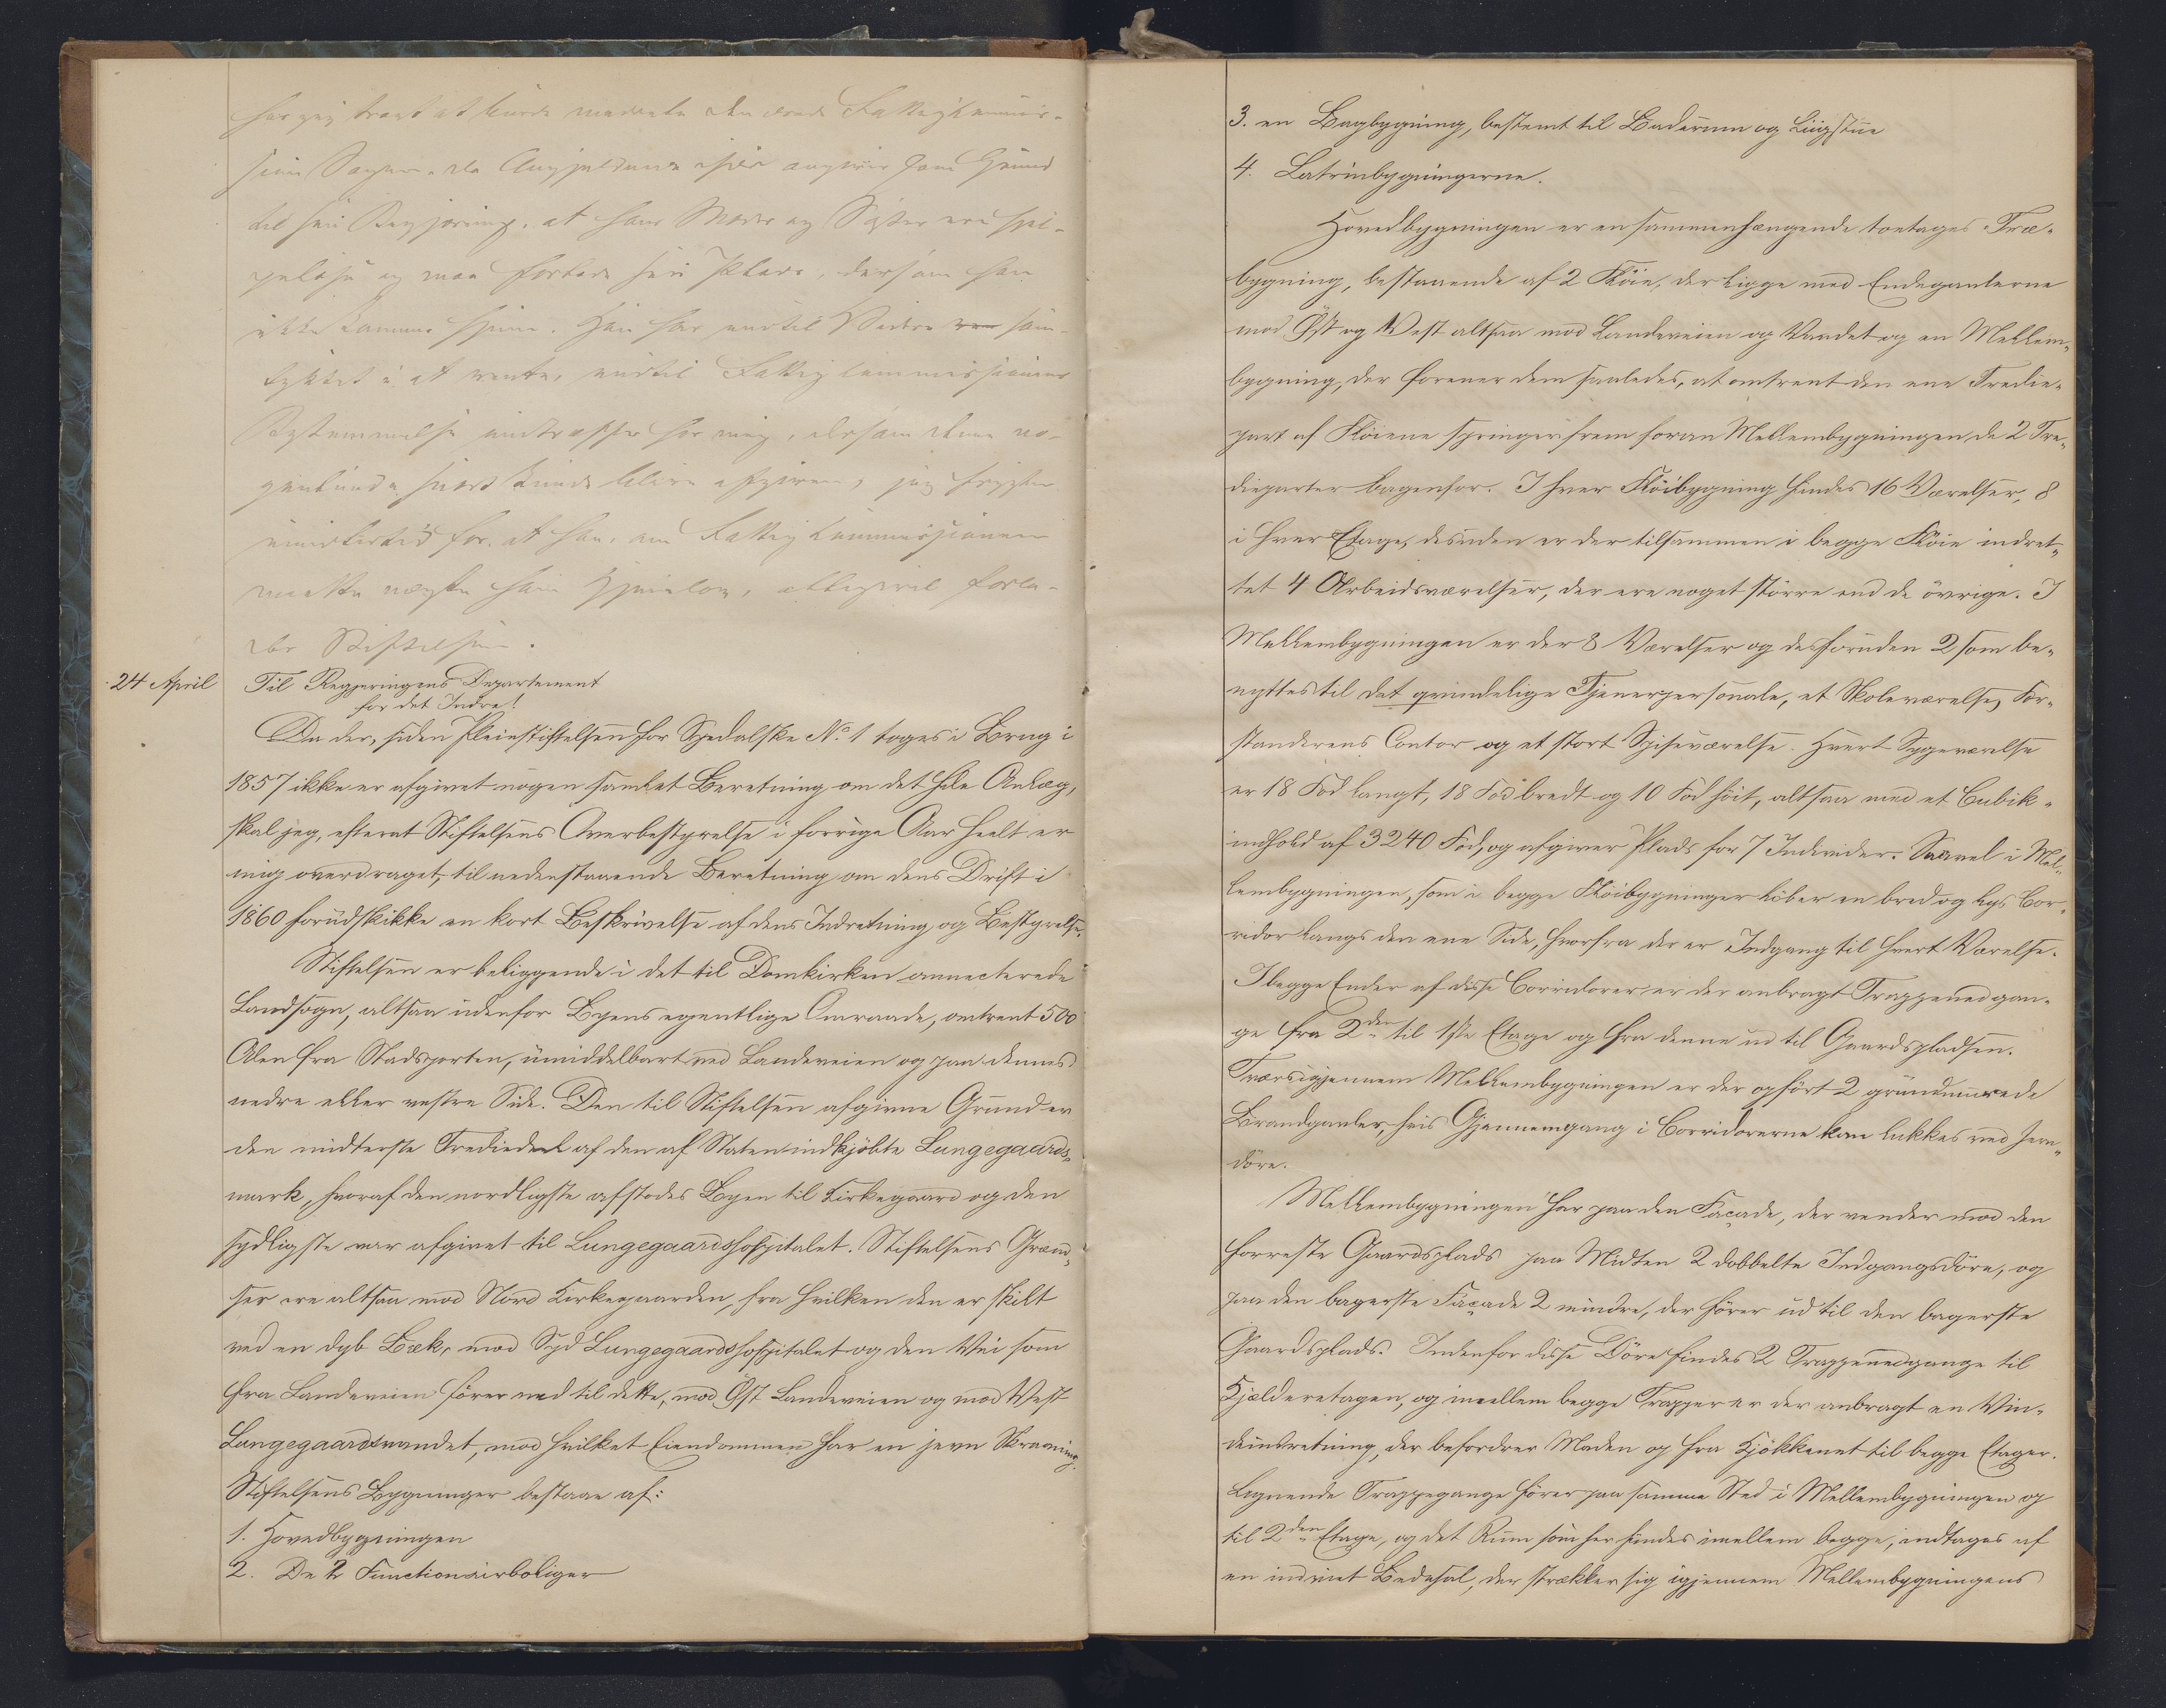 har jeg troet at burde meddele den ærede Fattigkommis-
sion Sagen, da Angjeldende selv angiver som Grund
til sin Begjæring, at hans Moder og Søster ere
og maa forlade sin Plads, dersom han
ikke kommer hjem. Han har indtil Videre sam-
tykket i at vente, indtil Fattigkommissionens
Bestemmelse indtræffer for mig, dersom denne
snart kunde blive afgiven, jeg frygter
imidlertid for, at han, om Fattigkommissionen
maatte nægte ham Hjemlov, alligevel forla-
der Stiftelsen.
24 April Til Regjeringens Departement
for det Indre!
Da der, siden Pleiestiftelsen for Spedalske No 1 toges i Brug i
1857 ikke er afgivet nogen samlet Beretning om det hele Anlæg,
skal jeg, efterat Stiftelsens Overbestyrelse i forrige Aar heelt er
mig overdraget, til nedenstaaende Beretning om dens Drift i
1860 forudskikke en kort Beskrivelse af dens Indretning og Bestyrelse.
Stiftelsen er beliggende i det til Domkirken annecterede
Landsogn, altsaa udenfor Byens egentlige Omraade, omtrent 500
Alen fra Stadsporten, umiddelbart ved Landeveien og paa dennes
nedre eller vestre Side. Den til Stiftelsen afgivne Grund er
den midterste Trediedeel af den af Staten indkjöbte Lungegaards-
mark, hvoraf den nordligste afstodes Byen til Kirkegaard og den
sydligste var afgivet til Lungegaardshospitalet. Stiftelsens Græn-
ser ere altsaa mod Nord Kirkegaarden, fra hvilken den er skilt
ved en dyb Bæk, mod Syd Lungegaardshospitalet og den Vei som
fra Landeveien förer ned til dette, mod Öst Landeveien og mod Vest
Lungegaardsvandet, mod hvilket Eiendommen har en jevn Skraaning.
Stiftelsens Bygninger bestaae af:
1. Hovedbygningen
2. De 2 Functionairboliger
3. en Bagbygning, bestemt til Baderum og Liigstue
4. Latrinbygningerne.
Hovedbygningen er en sammenhængende toetages Træ-
bygning, bestaaende af 2 Flöie, der ligge med Endegavlerne
mod Öst og Vest altsaa mod Landeveien og Vandet og en Mellem-
bygning, der forener dem saaledes, at omtrent den ene Tredie-
part af Flöiene springer frem foran Mellembygningen de 2 Tre-
dieparter bagenfor. I hver Flöibygning findes 16 Værelser, 8
i hver Etage, desuden er der tilsammen i begge Flöie indret-
tet 4 Arbeidsværelser, der ere noget större end de övrige. I
Mellembygningen er der 8 Værelser og desforuden 2 som be-
nyttes til det qvindelige Tjenerpersonale, et Skoleværelse, For-
standerens Contor og et stort Spiseværelse. Hvert Sygeværelse
er 18 Fod langt, 18 Fod bredt og 10 Fod höit, altsaa med et Cubik-
indhold af 3240 Fod, og afgiver Plads for 7 Individer. Saavel i Mel-
lembygningen, som i begge Flöibygninger löber en bred og lys Cor-
ridor langs den ene Side, hvorfra der er Indgang til hvert Værelse.
I begge Ender af disse Corridorer er der anbragt Trappenedgan-
ge fra 2den til 1ste Etage og fra denne ud til Gaardspladsen.
Tversigjennem Mellembygningen er der opfört 2 grundmurede
Brandgavler, hvis Gjennemgang i Corridorerne kan lukkes ved Jern-
döre.
Mellembygningen har paa den Façade, der vender mod den
forreste Gaardsplads paa Midten 2 dobbelte Indgangsdöre, og
paa den bagerste Façade 2 mindre, der förer ud til den bagerste
Gaardsplads. Indenfor disse Döre findes 2 Trappenedgange til
Kjælderetagen, og imellem begge Trapper er der anbragt en Vin-
deindretning, der befordrer Maden op fra Kjökkenet til begge Etager.
Lignende Trappegange förer paa samme Sted i Mellembygningen op
til 2den Etage, og det Rum som her findes imellem begge, indtages af
en indviet Bedesal, der strækker sig igjennem Mellembygningens